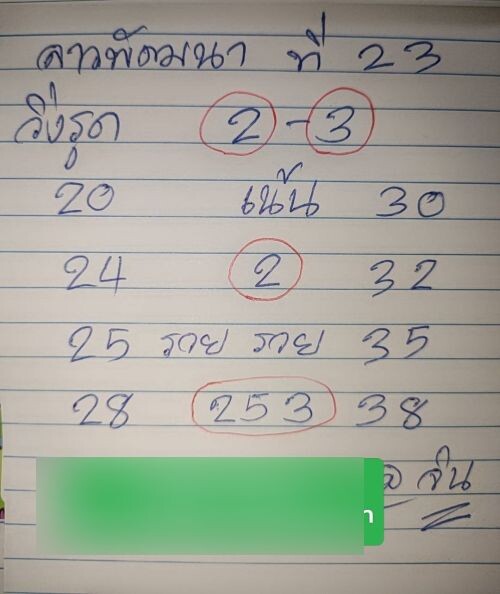 ลาวพัฒนา ที่ 23
วิ่งรูด 2 - 3
20 เน้น 30
24 2 32
25 รวย รวย 35
28 253 38
จิน